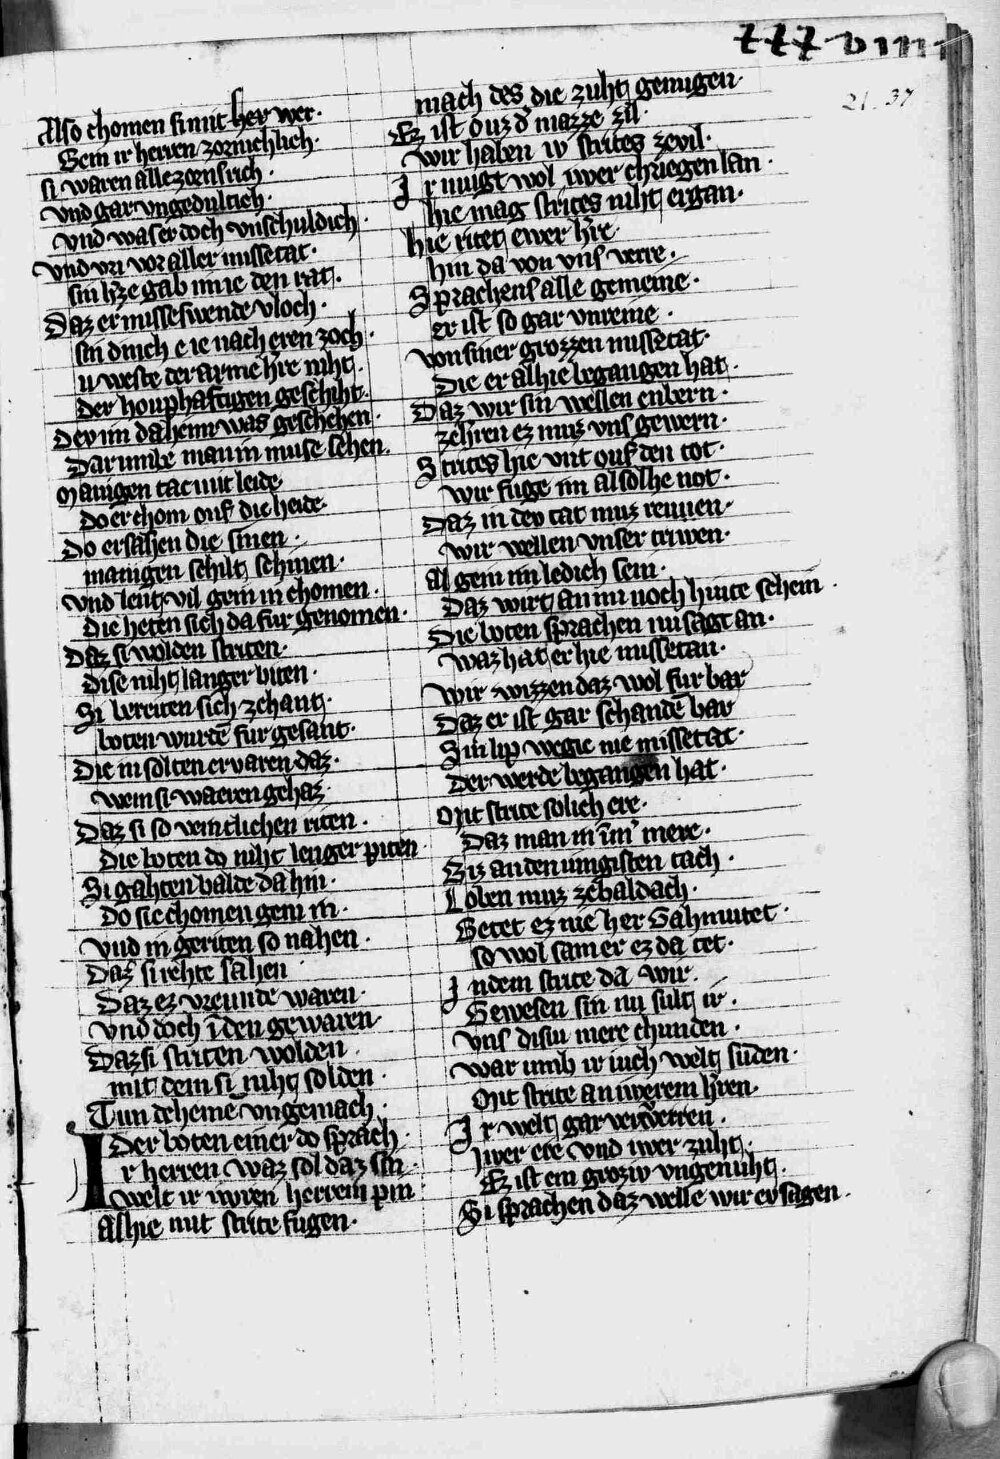 xxxviiii
21. 37
Also chomen si mit her wer·
Gein ir herren zornichlich·
si waren alle zornsrich·
vnd gar vngedultich·
vnd was er doch vnschuldich·
vnd vri vor aller missetat·
sin h͛ze gab im ie den rat·
Daz er missewende vloch·
sin dinch e ie nach eren zoch·
u weste der arme h͛re niht·
der houphaftigen geschiht·
Dev im da heim was geschehen·
Dar vmbe man in muse sehen·
Manigen tac mit leide
do er chom ouf die heide·
Do ersahen die sinen·
manigen schilt schinen·
vnd leut vil gein in chomen·
die heten sich da fur genomen·
Daz si wolden striten·
dise niht langer biten·
Si bereiten sich zehant·
boten wurdē fur gesant·
Die in solten ervaren daz·
wem si waeren gehaz·
Daz si so veintlichen riten·
die boten do niht lenger piten·
Si gahten balde da hin·
do sie chomen gein in·
vnd in geriten so nahen·
Daz si rehte sahen
Daz ez vreunde waren·
vnd doch in den gewaren
Daz si striten wolden
mit dem si niht solden·
Tun deheine vngemach·
Der boten einer do sprach·
Ir herren waz sol daz sin·
welt ir iwren herren pin
Alhie mit strite fugen·
mach des die zuht genugen·
Ez ist ouz d͛ mazze zil·
wir haben iv strites zevil·
Ir mugt wol iwer chriegen lan·
hie mag strites niht ergan·
hie ritet ewer h͛re
hin da von vns verre·
Sprachens alle gemeine·
er ist so gar vnreine·
von siner grozzen missetat·
Die er alhie begangen hat·
Daz wir sin wellen enbern·
zehren ez muz vns gewern·
Strites hie vnt ouf den tot·
wir fuge im al solhe not·
Daz in dev tat muz rewen·
wir wellen vnser triwen·
Al gein im ledich sein·
Daz wirt an im noch hiute schein·
Die boten sprachen nu sagt an·
waz hat er hie missetan·
wir wizzen daz wol fur bar
Daz er ist gar schandē bar
Sin lip wegie nie missetat·
der werde begangen hat·
Mit strite solich ere·
Daz man in im͛ mere·
Biz an den iungisten tach·
Loben muz ze baldach·
Getet ez nie her Gahmuret·
so wol sam er ez da tet·
In dem strite da wir·
Gewesen sin nu sult ir·
vns disiu mere chunden·
war umb ir iuch welt sunden·
Mit strite an iwerem h͛ren·
Ir welt gar verwerren·
Iwer ere vnd iwer zuht·
Ez ist ein groziv vngenuht·
Si sprachen daz welle wir ev sagen·